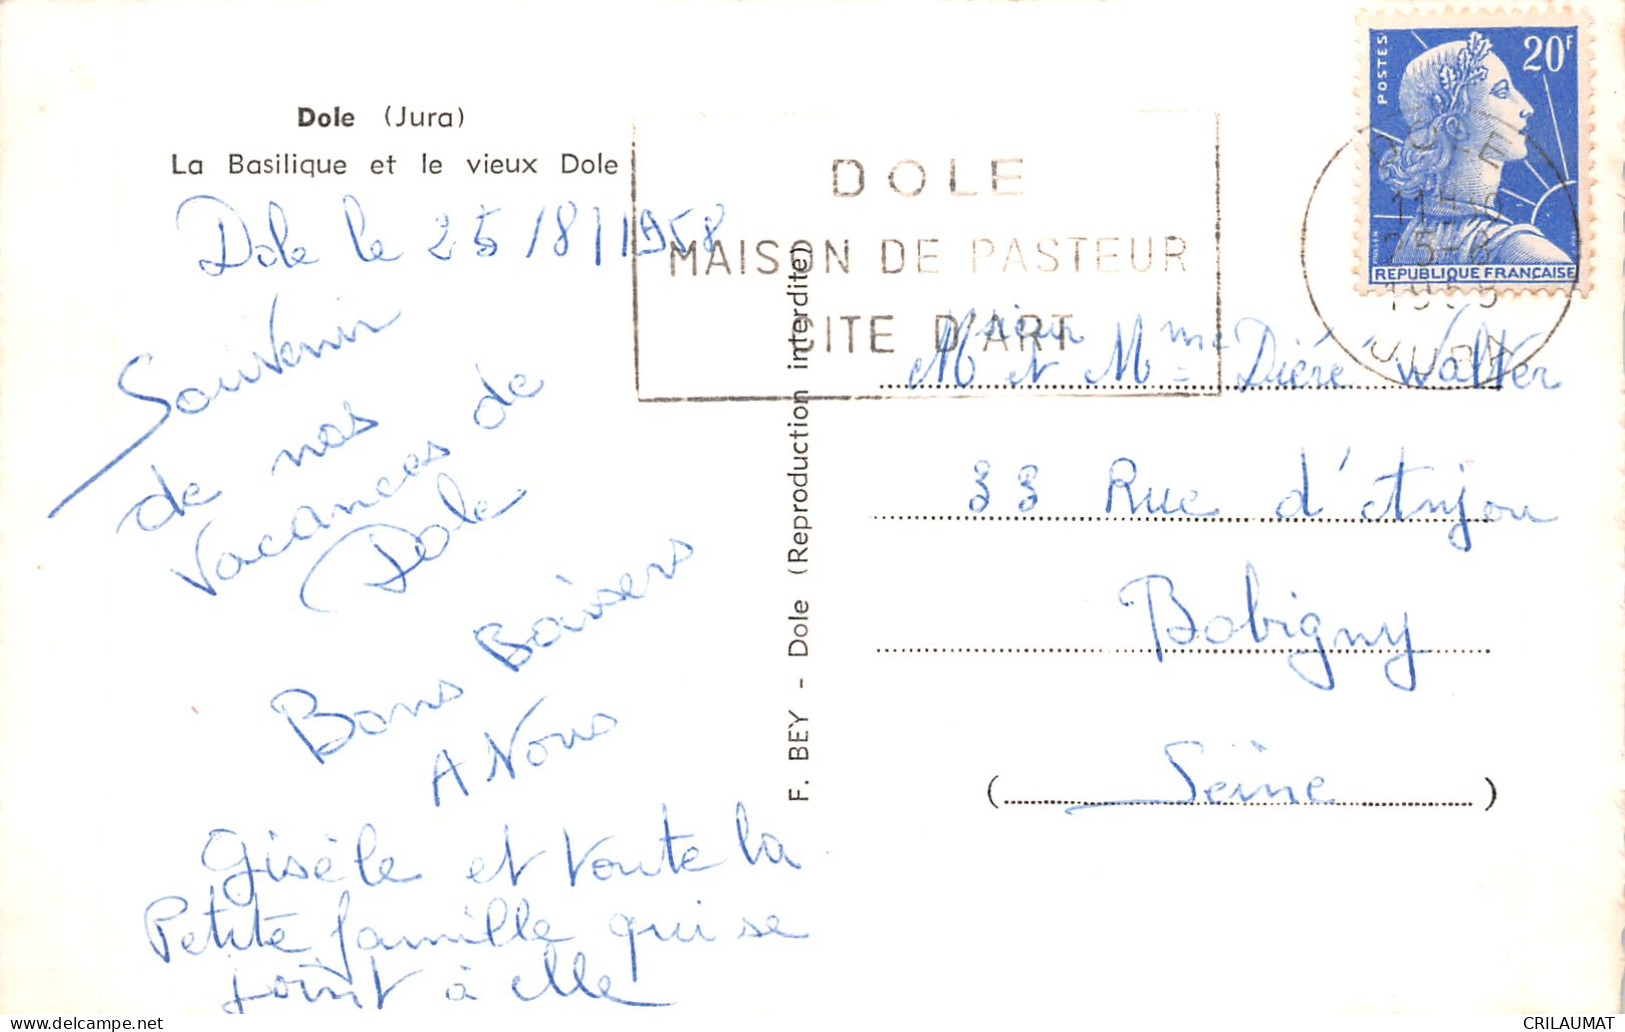 Dole (Jura)
La Basilique et le vieux Dole
Dole le 25/8/1958
Souvenir
de nos
vacances de
Dole
Bons Baisers
A Vous
Gisèle et toute la
Petite famille qui se
joint à elle
F. BEY - Dole (Reproduction interdite)
DOLE
MAISON DE PASTEUR
CITE D'ART
POSTES
20F
REPUBLIQUE FRANÇAISE
DOLE
25-8
JURA
Msieur et Mme Dièré Walter
33 Rue d'Anjou
Bobigny
(Seine)
CRILAUMAT